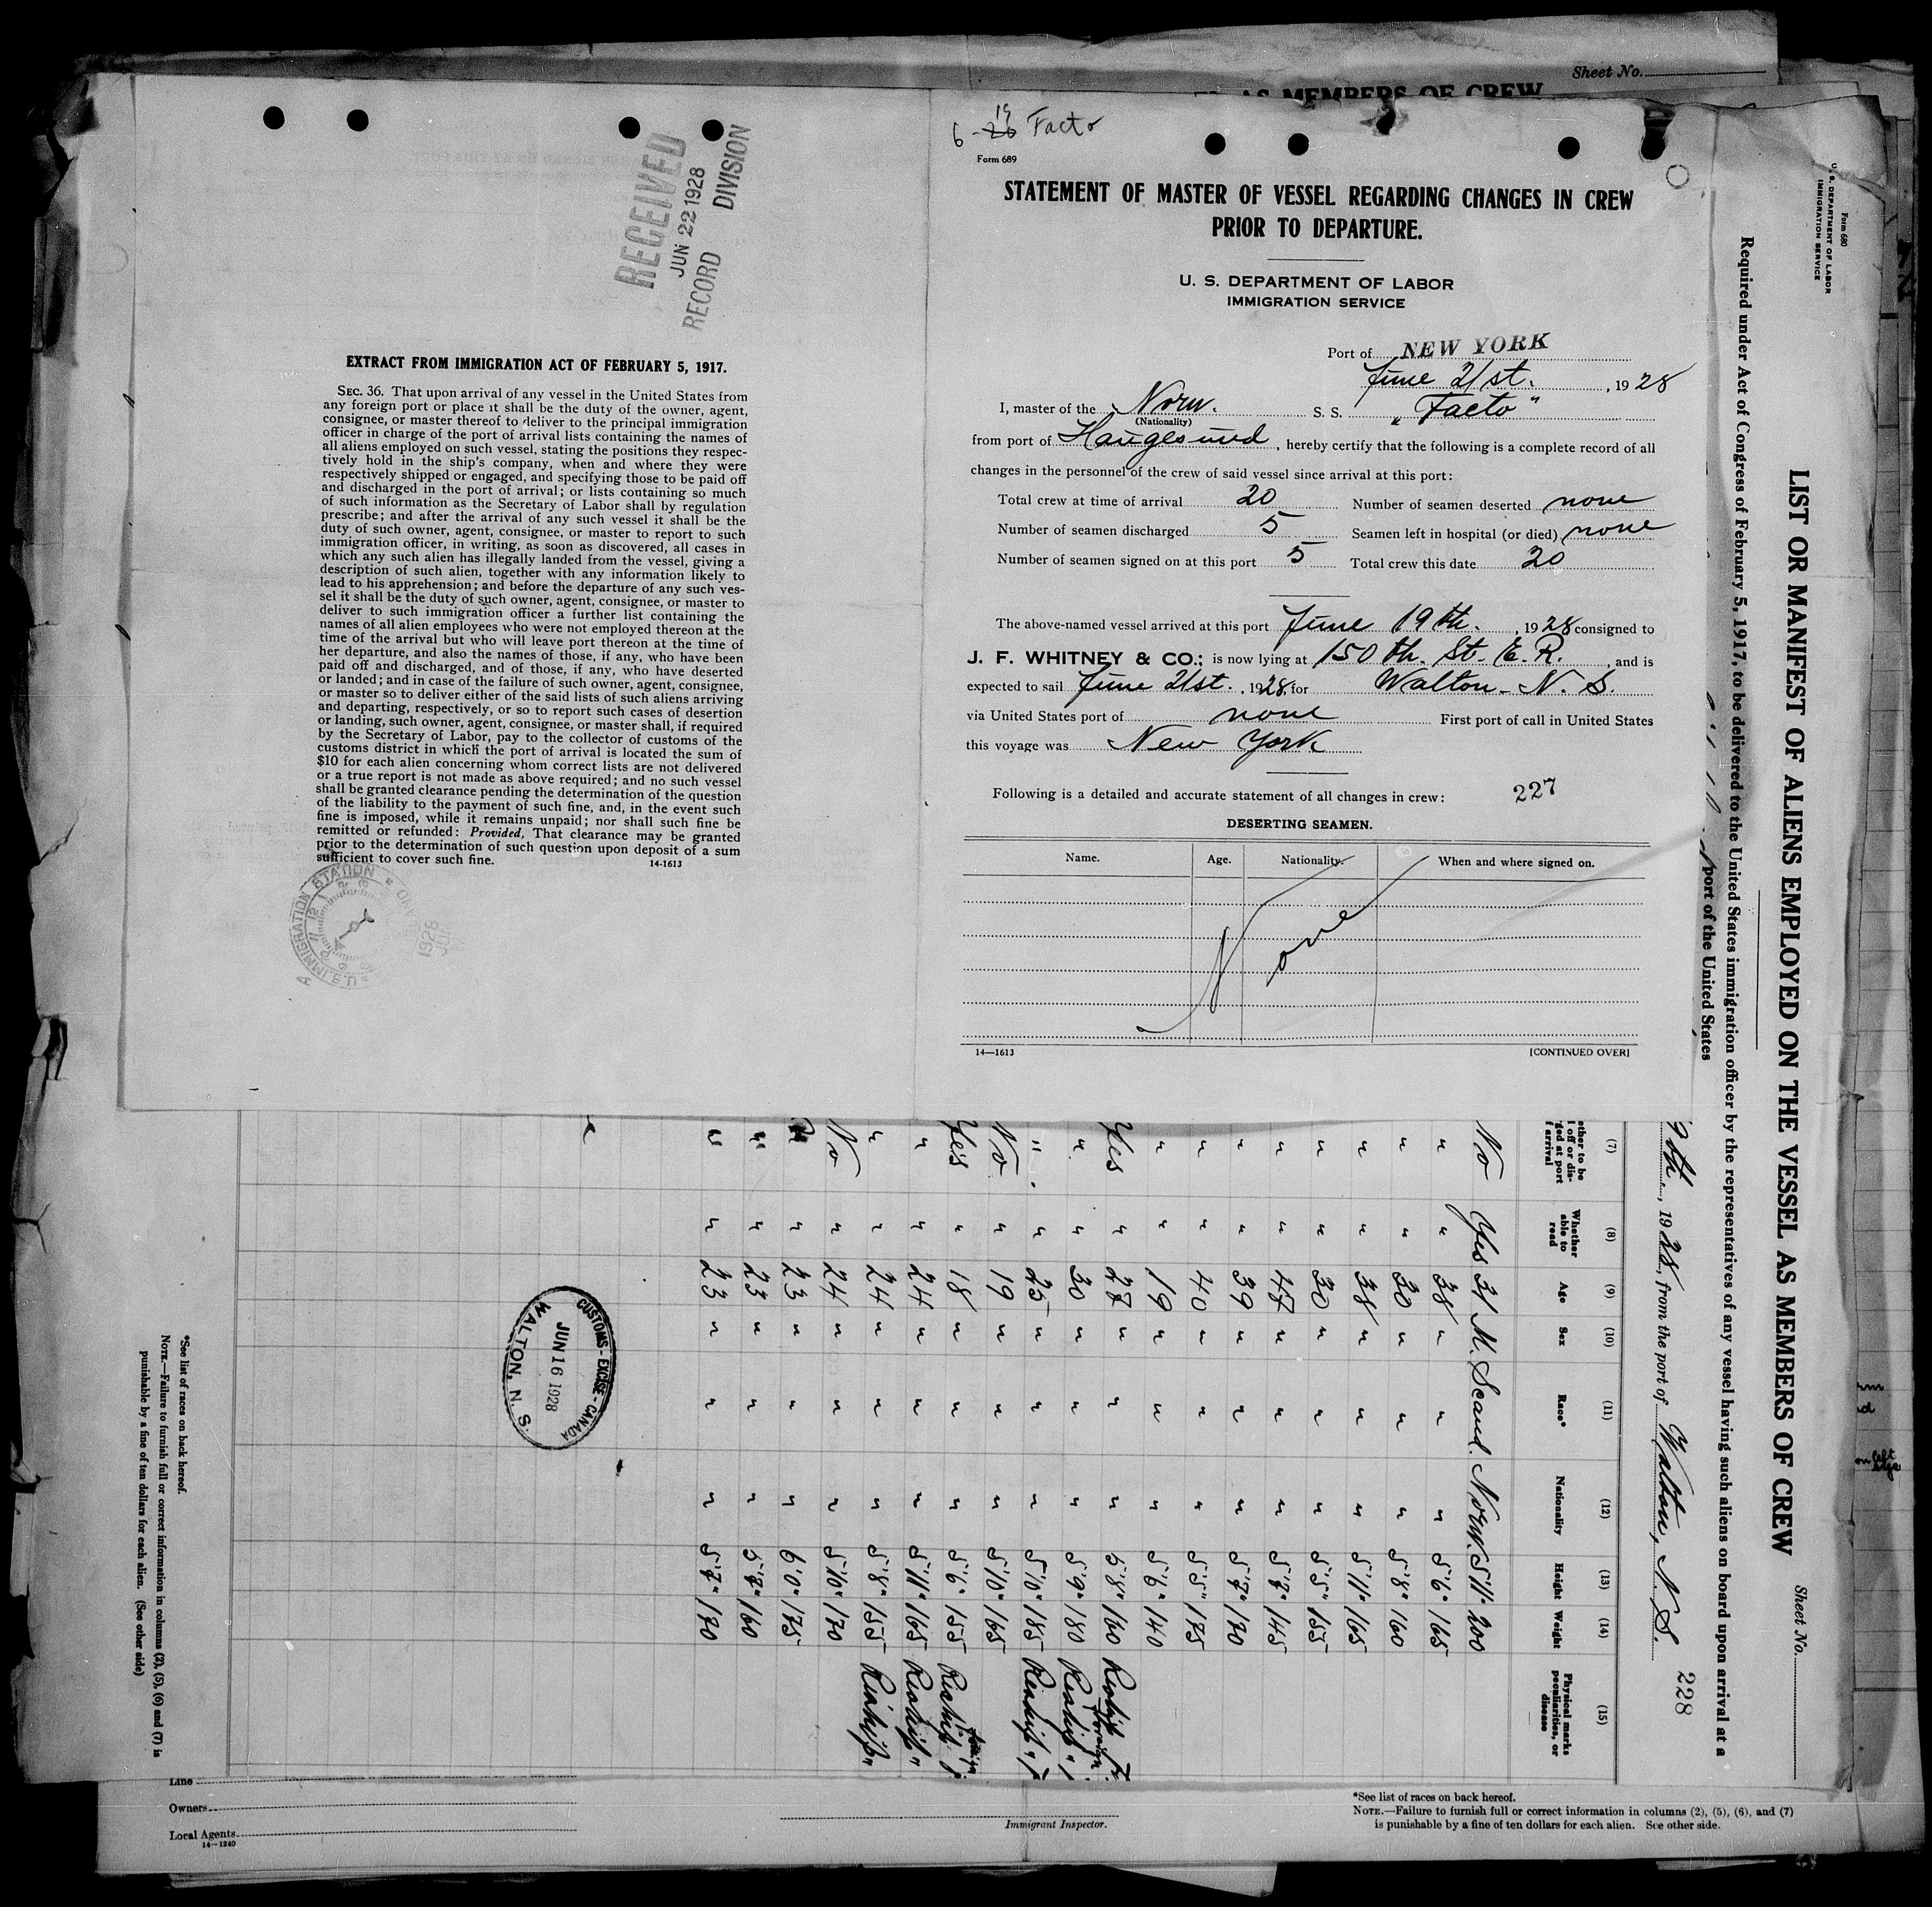 Sheet No.
AS MEMBERS OF CREW
RECEIVED
JUN 22 1928
RECORD DIVISION
EXTRACT FROM IMMIGRATION ACT OF FEBRUARY 5, 1917.
SEC. 36. That upon arrival of any vessel in the United States from
any foreign port or place it shall be the duty of the owner, agent,
consignee, or master thereof to deliver to the principal immigration
officer in charge of the port of arrival lists containing the names of
all aliens employed on such vessel, stating the positions they respec-
tively hold in the ship's company, when and where they were
respectively shipped or engaged, and specifying those to be paid off
and discharged in the port of arrival; or lists containing so much
of such information as the Secretary of Labor shall by regulation
prescribe; and after the arrival of any such vessel it shall be the
duty of such owner, agent, consignee, or master to report to such
immigration officer, in writing, as soon as discovered, all cases in
which any such alien has illegally landed from the vessel, giving a
description of such alien, together with any information likely to
lead to his apprehension; and before the departure of any such ves-
sel it shall be the duty of such owner, agent, consignee, or master to
deliver to such immigration officer a further list containing the
names of all alien employees who were not employed thereon at the
time of the arrival but who will leave port thereon at the time of
her departure, and also the names of those, if any, who have been
paid off and discharged, and of those, if any, who have deserted
or landed; and in case of the failure of such owner, agent, consignee,
or master so to deliver either of the said lists of such aliens arriving
and departing, respectively, or so to report such cases of desertion
or landing, such owner, agent, consignee, or master shall, if required
by the Secretary of Labor, pay to the collector of customs of the
customs district in which the port of arrival is located the sum of
$10 for each alien concerning whom correct lists are not delivered
or a true report is not made as above required; and no such vessel
shall be granted clearance pending the determination of the question
of the liability to the payment of such fine, and, in the event such
fine is imposed, while it remains unpaid; nor shall such fine be
remitted or refunded: Provided, That clearance may be granted
prior to the determination of such question upon deposit of a sum
sufficient to cover such fine.
14-1613
U.S. IMMIGRATION STATION
1928
6-26 19 Facto
Form 689
STATEMENT OF MASTER OF VESSEL REGARDING CHANGES IN CREW
PRIOR TO DEPARTURE.
U. S. DEPARTMENT OF LABOR
IMMIGRATION SERVICE
Port of NEW YORK
June 21st. , 1928
I, master of the Norw. S. S. "Facto"
(Nationality)
from port of Haugesund, hereby certify that the following is a complete record of all
changes in the personnel of the crew of said vessel since arrival at this port:
Total crew at time of arrival 20 Number of seamen deserted none
Number of seamen discharged 5 Seamen left in hospital (or died) none
Number of seamen signed on at this port 5 Total crew this date 20
The above-named vessel arrived at this port June 19th. , 1928 consigned to
J. F. WHITNEY & CO.; is now lying at 150th. St. E. R. , and is
expected to sail June 21st. , 1928, for Walton - N. S.
via United States port of none First port of call in United States
this voyage was New York
Following is a detailed and accurate statement of all changes in crew: 227
DESERTING SEAMEN.
Name. Age. Nationality. When and where signed on.
None
14—1613 [CONTINUED OVER]
Form 680
U. S. DEPARTMENT OF LABOR
IMMIGRATION SERVICE
LIST OR MANIFEST OF ALIENS EMPLOYED ON THE VESSEL AS MEMBERS OF CREW
Sheet No.
Required under Act of Congress of February 5, 1917, to be delivered to the United States immigration officer by the representatives of any vessel having such aliens on board upon arrival at a
port of the United States
9th, 1928, from the port of Walton, N. S. 228
(7) (8) (9) (10) (11) (12) (13) (14) (15)
Whether able to read Age Sex Race* Nationality Height Weight Physical marks peculiarities, or disease
No Yes 31 M. Scand. Norw. 5'11" 200
" " 38 " " " 5'6" 165
" " 30 " " " 5'8" 160
" " 38 " " " 5'11" 165
" " 30 " " " 5'5" 155
" " 47 " " " 5'7" 145
" " 39 " " " 5'7" 170
" " 40 " " " 5'5" 175
" " 19 " " " 5'6" 140
Yes " 27 " " " 5'8" 160
" " 30 " " " 5'9" 180
" " 25 " " " 5'10" 185
No " 19 " " " 5'10" 165
Yes " 18 " " " 5'6" 155
" " 24 " " " 5'11" 165
" " 24 " " " 5'8" 155
No " 24 " " " 5'10" 170
" " 23 " " " 6'0" 175
" " 23 " " " 5'7" 160
" " 23 " " " 5'7" 170
CUSTOMS - EXCISE - CANADA
JUN 16 1928
WALTON, N. S.
*See list of races on back hereof.
NOTE.—Failure to furnish full or correct information in columns (2), (5), (6) and (7) is
punishable by a fine of ten dollars for each alien. (See other side)
Line
Owners
Local Agents
14—1240
Immigrant Inspector.
*See list of races on back hereof.
NOTE.—Failure to furnish full or correct information in columns (2), (5), (6), and (7)
is punishable by a fine of ten dollars for each alien. See other side.